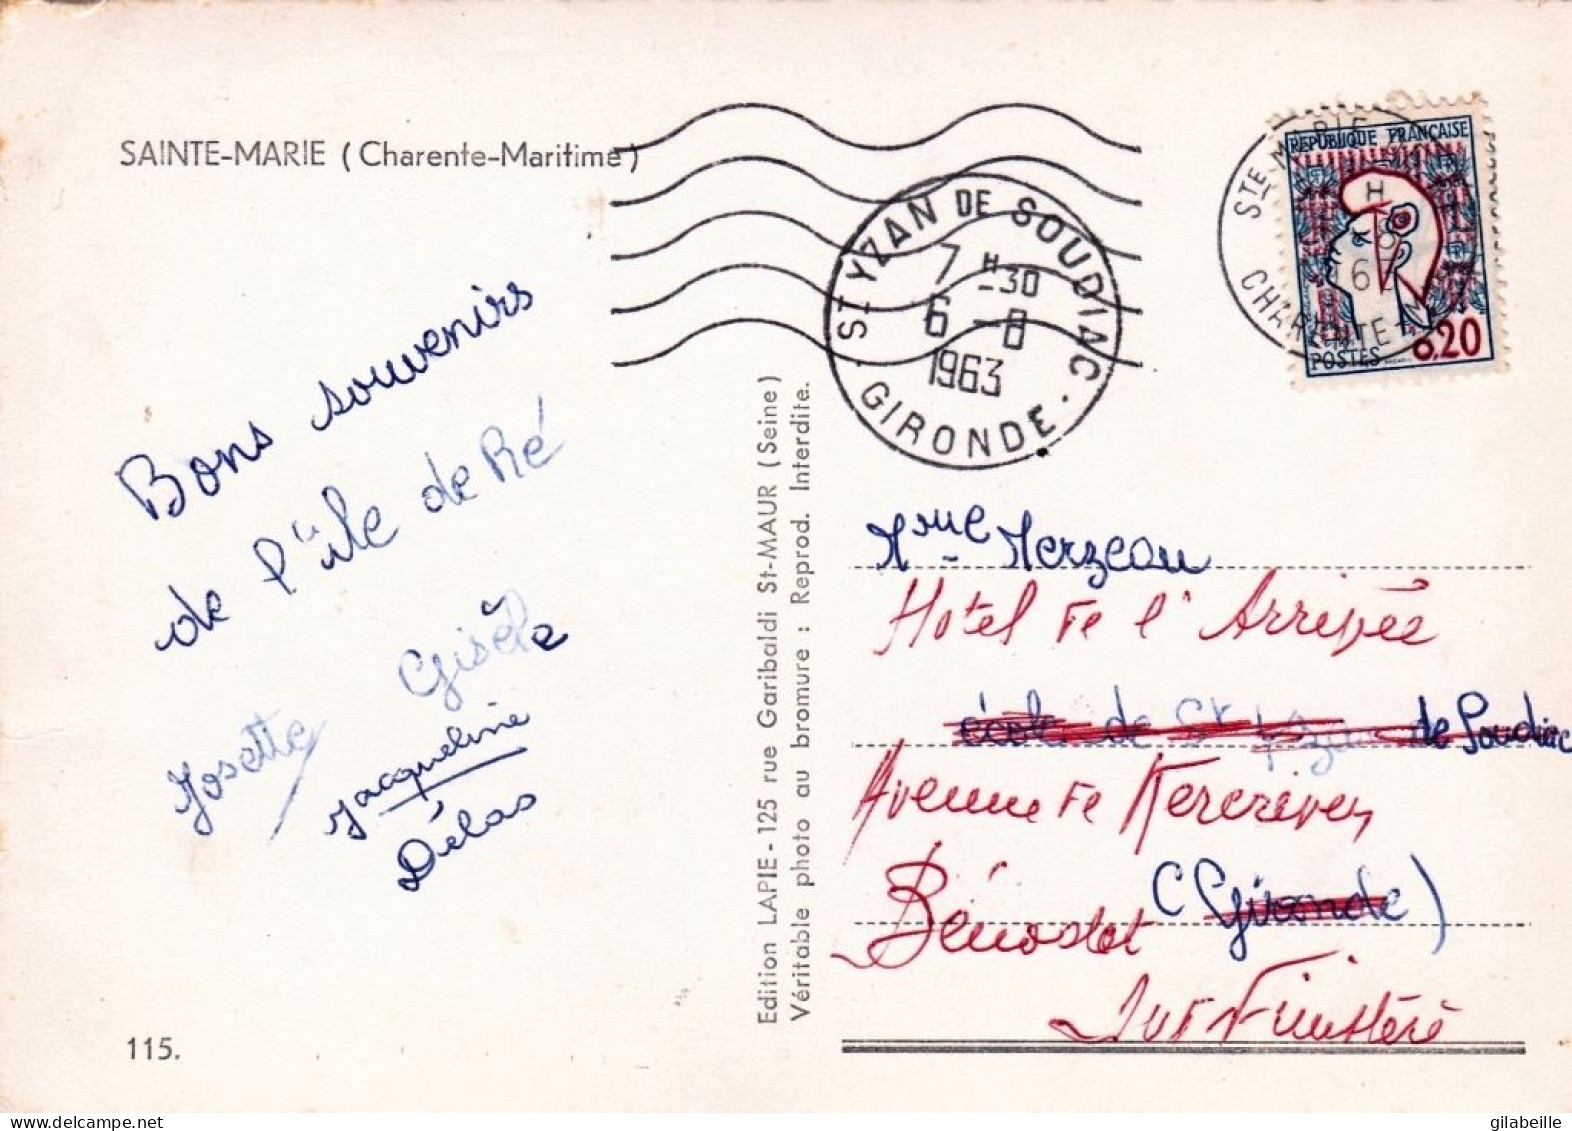 SAINTE-MARIE ( Charente-Maritime )
Bons souvenirs
de l'île de Ré
Gisèle
Josette
Jacqueline
Délas
115.
Edition LAPIE - 125 rue Garibaldi St-MAUR (Seine)
Véritable photo au bromure : Reprod. Interdite.
ST YZAN DE SOUDIAC
7 H -30
6 - 8
1963
GIRONDE
STE MARIE
CHARENTE-M
REPUBLIQUE FRANÇAISE
POSTES
0.20
Mme Merzeau
Hotel Fe l'Arrivée
école de St Yzan de Soudiac
Avenue Fe
Bénodet
(Gironde)
Sut Finistère
gilabeille